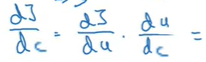 dJ/dc = dJ/du · du/dc =